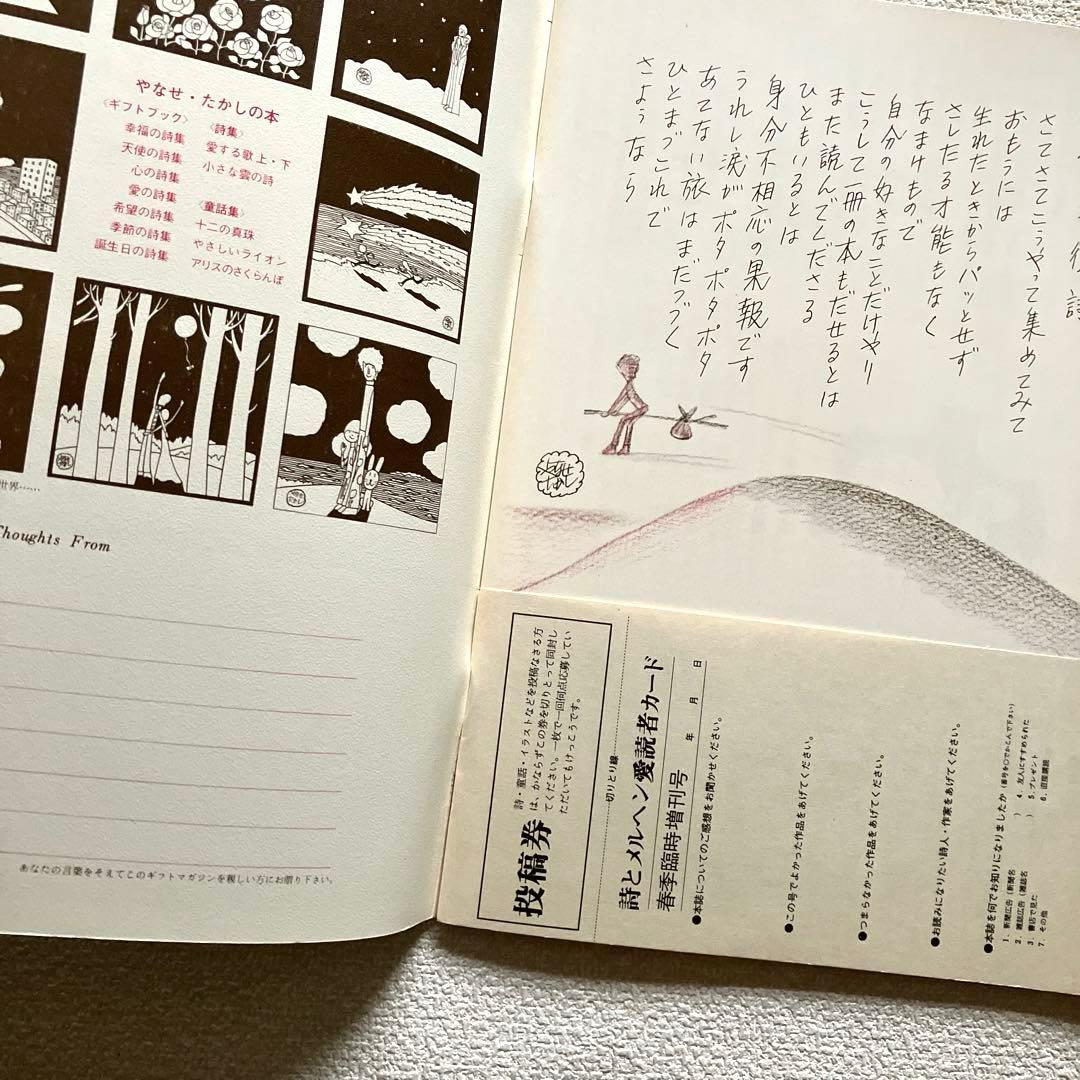 やなせ・たかしの本
〈ギフトブック〉
幸福の詩集
天使の詩集
心の詩集
愛の詩集
希望の詩集
季節の詩集
誕生日の詩集
〈詩集〉
愛する歌上・下
小さな雲の詩
〈童話集〉
十二の真珠
やさしいライオン
アリスのさくらんぼ
世界……
Thoughts From
あなたの言葉をそえてこのギフトマガジンを親しい方にお贈り下さい。
さてさてこうやって集めてみて
おもうには
生れたときからパッとせず
さしたる才能もなく
なまけもので
自分の好きなことだけやり
こうして一冊の本もだせるとは
また読んでくださる
ひともいるとは
身分不相応の果報です
うれし涙がポタポタポタ
あてない旅はまだつづく
ひとまづこれで
さようなら
投稿券
詩・童話・イラストなどを投稿なさる方
は、かならずこの券を切りとって同封し
てください。一枚で一回何点応募してい
ただいてもけっこうです。
切りとり線
詩とメルヘン愛読者カード
春季臨時増刊号
年 月 日
●本誌についてのご感想をお聞かせください。
●この号でよかった作品をあげてください。
●つまらなかった作品をあげてください。
●お読みになりたい詩人・作家をあげてください。
●本誌を何でお知りになりましたか(番号を○でかこんで下さい)
1. 新聞広告(新聞名 ) 4. 友人にすすめられた
2. 雑誌広告(雑誌名 ) 5. プレゼント
3. 書店で見た 6. 直接購読
7. その他